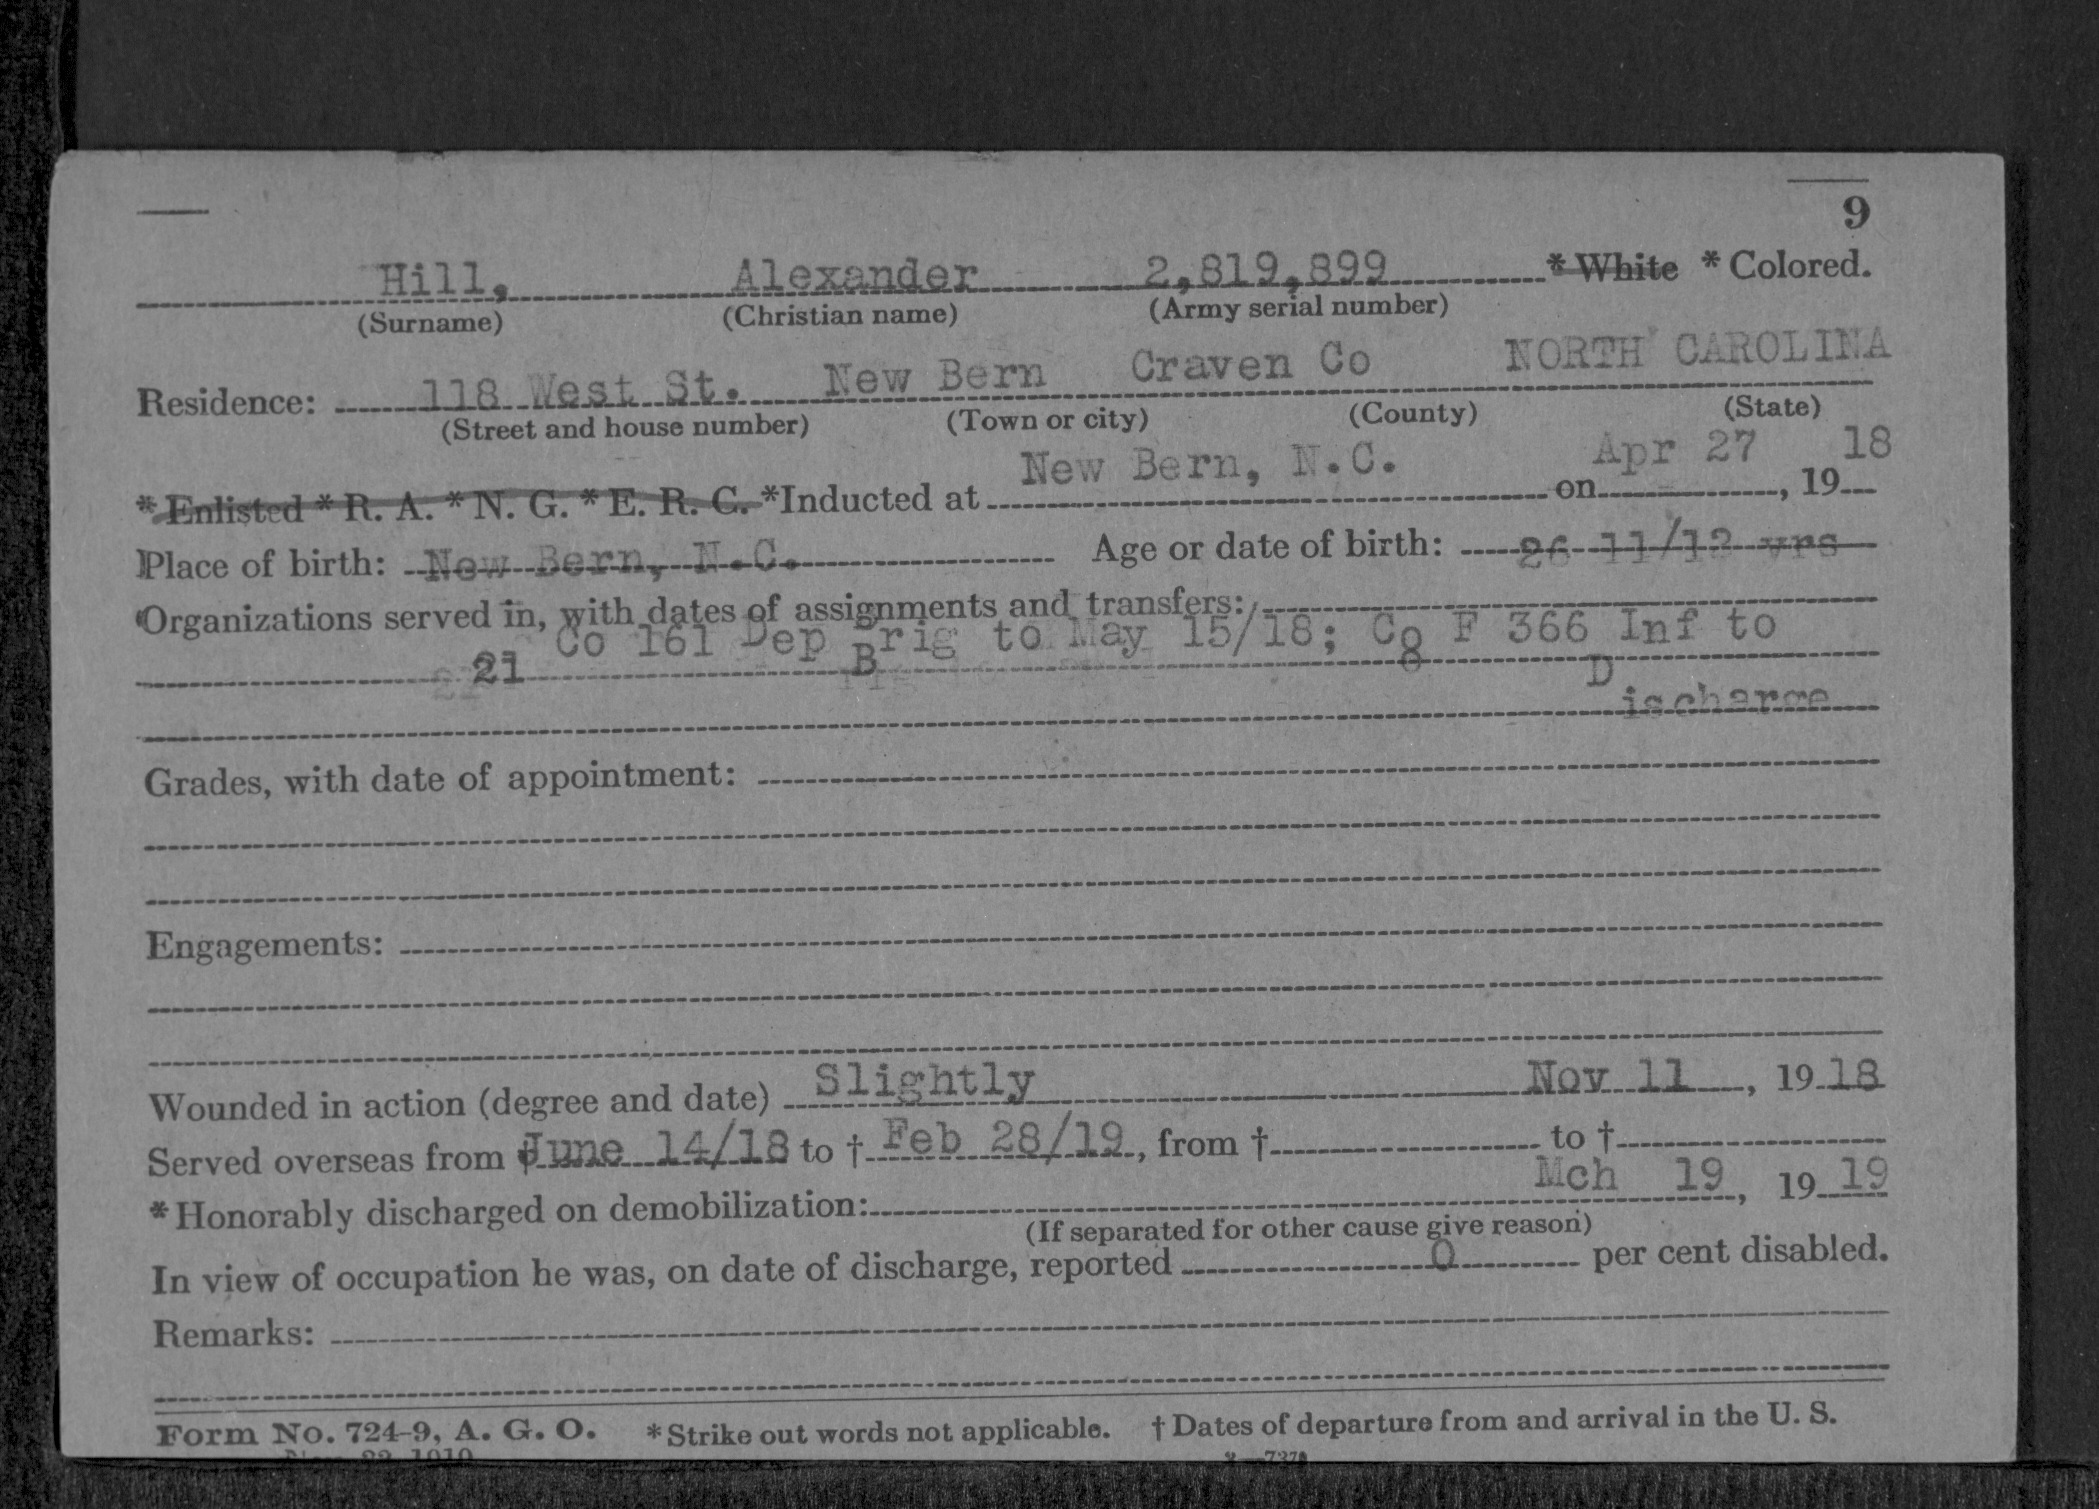 9
Hill, Alexander 2,819,899 * White * Colored.
(Surname) (Christian name) (Army serial number)
Residence: 118 West St. New Bern Craven Co NORTH CAROLINA
(Street and house number) (Town or city) (County) (State)
* Enlisted * R. A. * N. G. * E. R. C. *Inducted at New Bern, N.C. on Apr 27, 1918
Place of birth: New Bern, N.C. Age or date of birth: 26 11/12 yrs
Organizations served in, with dates of assignments and transfers:
21 Co 161 Dep Brig to May 15/18; Co F 366 Inf to
Discharge
Grades, with date of appointment:
Engagements:
Wounded in action (degree and date) Slightly Nov 11, 1918
Served overseas from † June 14/18 to † Feb 28/19, from † to †
* Honorably discharged on demobilization: Mch 19, 1919
(If separated for other cause give reason)
In view of occupation he was, on date of discharge, reported 0 per cent disabled.
Remarks:
Form No. 724-9, A. G. O. * Strike out words not applicable. † Dates of departure from and arrival in the U. S.